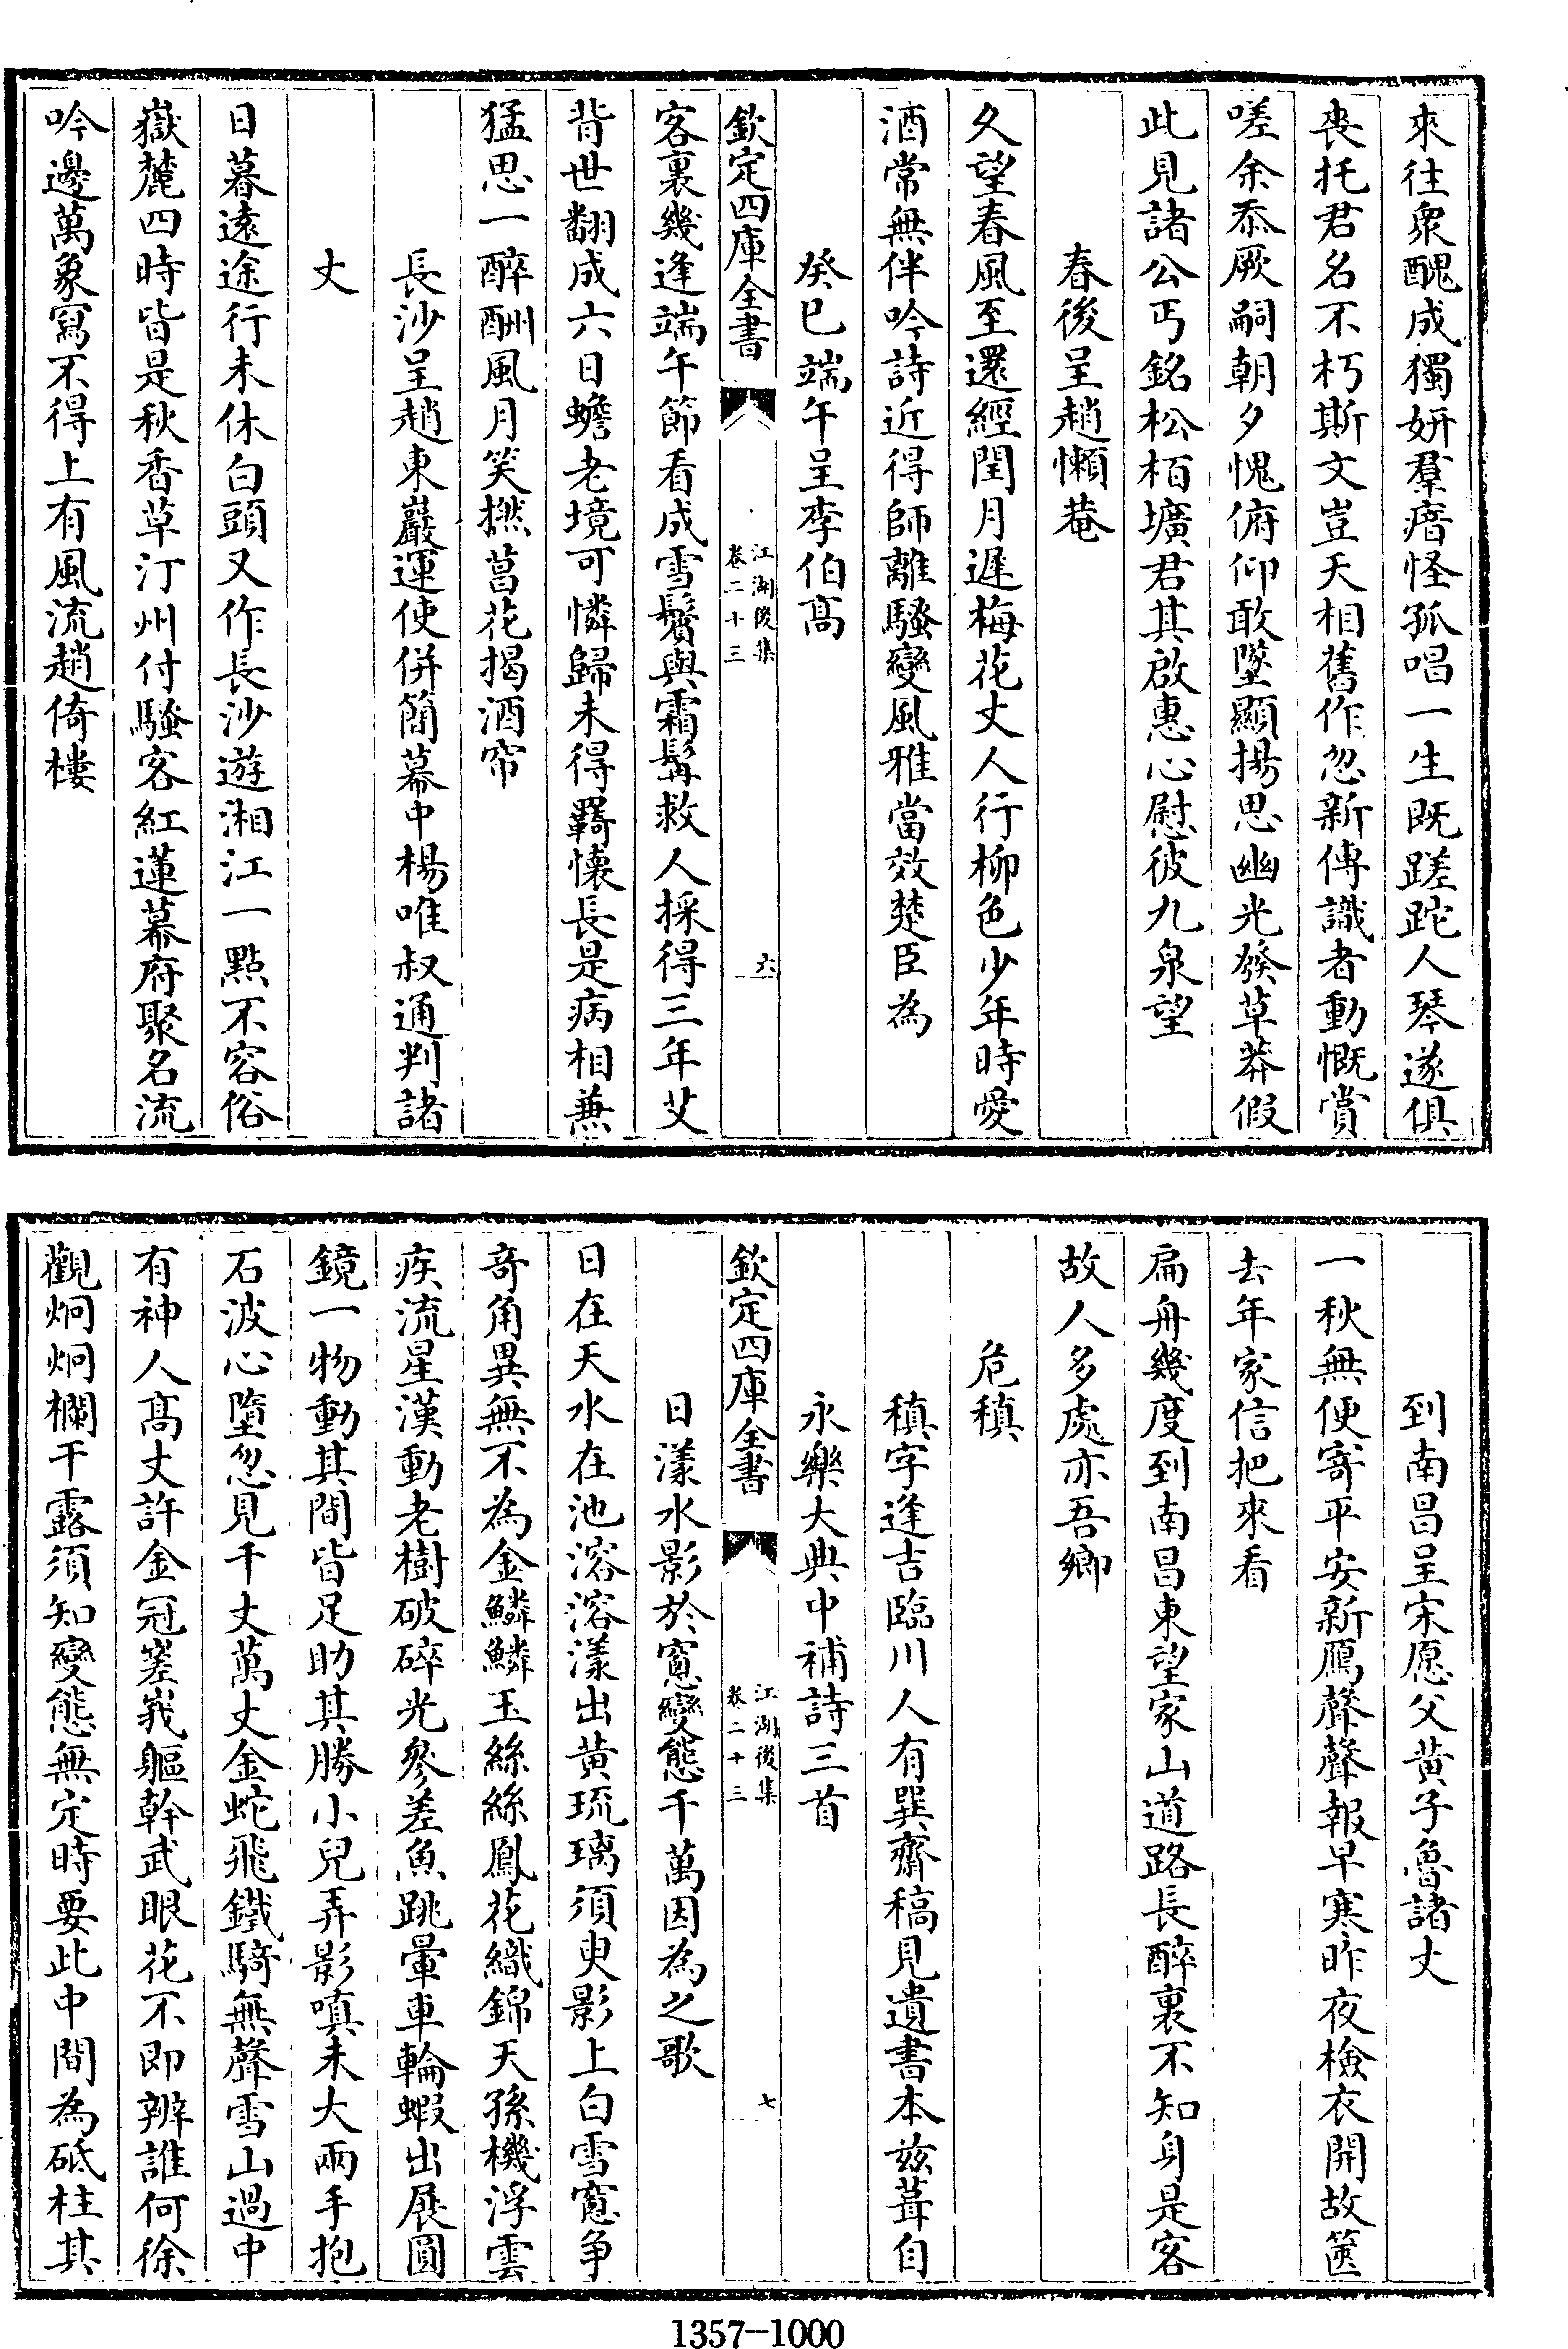 來往衆醜成獨妍羣瘖怪孤唱一生既蹉跎人琴遂俱
喪托君名不朽斯文豈天相舊作忽新傳識者動慨賞
嗟余忝厥嗣朝夕愧俯仰敢墜顯揚思幽光發草莽假
此見諸公丐銘松栢壙君其啟惠心慰彼九泉望
春後呈趙懶菴
久望春風至還經閏月遲梅花丈人行柳色少年時愛
酒常無伴吟詩近得師離騷變風雅當效楚臣為
癸巳端午呈李伯高
欽定四庫全書
江湖後集
卷二十三
六
客裏幾逢端午節看成雪鬢與霜髯救人採得三年艾
背世翻成六日蟾老境可憐歸未得羇懷長是病相兼
猛思一醉酬風月笑撚菖花揭酒帘
長沙呈趙東巖運使併簡幕中楊唯叔通判諸
丈
日暮遠途行未休白頭又作長沙遊湘江一點不容俗
嶽麓四時皆是秋香草汀州付騷客紅蓮幕府聚名流
吟邊萬象寫不得上有風流趙倚樓
到南昌呈宋愿父黄子魯諸丈
一秋無便寄平安新鴈聲聲報早寒昨夜檢衣開故篋
去年家信把來看
扁舟幾度到南昌東望家山道路長醉裏不知身是客
故人多處亦吾鄉
危稹
稹字逢吉臨川人有巽齋稿見遺書本兹葺自
永樂大典中補詩三首
欽定四庫全書
江湖後集
卷二十三
七
日漾水影於窻變態千萬因為之歌
日在天水在池溶溶漾出黄琉璃須臾影上白雪窻争
竒角異無不為金鱗鱗玉絲絲鳳花織錦天孫機浮雲
疾流星漢動老樹破碎光參差魚跳暈車輪蝦出展圓
鏡一物動其間皆足助其勝小兒弄影嗔未大兩手抱
石波心墮忽見千丈萬丈金蛇飛鐵騎無聲雪山過中
有神人髙丈許金冠嵳峩軀幹武眼花不即辨誰何徐
觀炯炯欄干露須知變態無定時要此中間為砥柱其
1357-1000